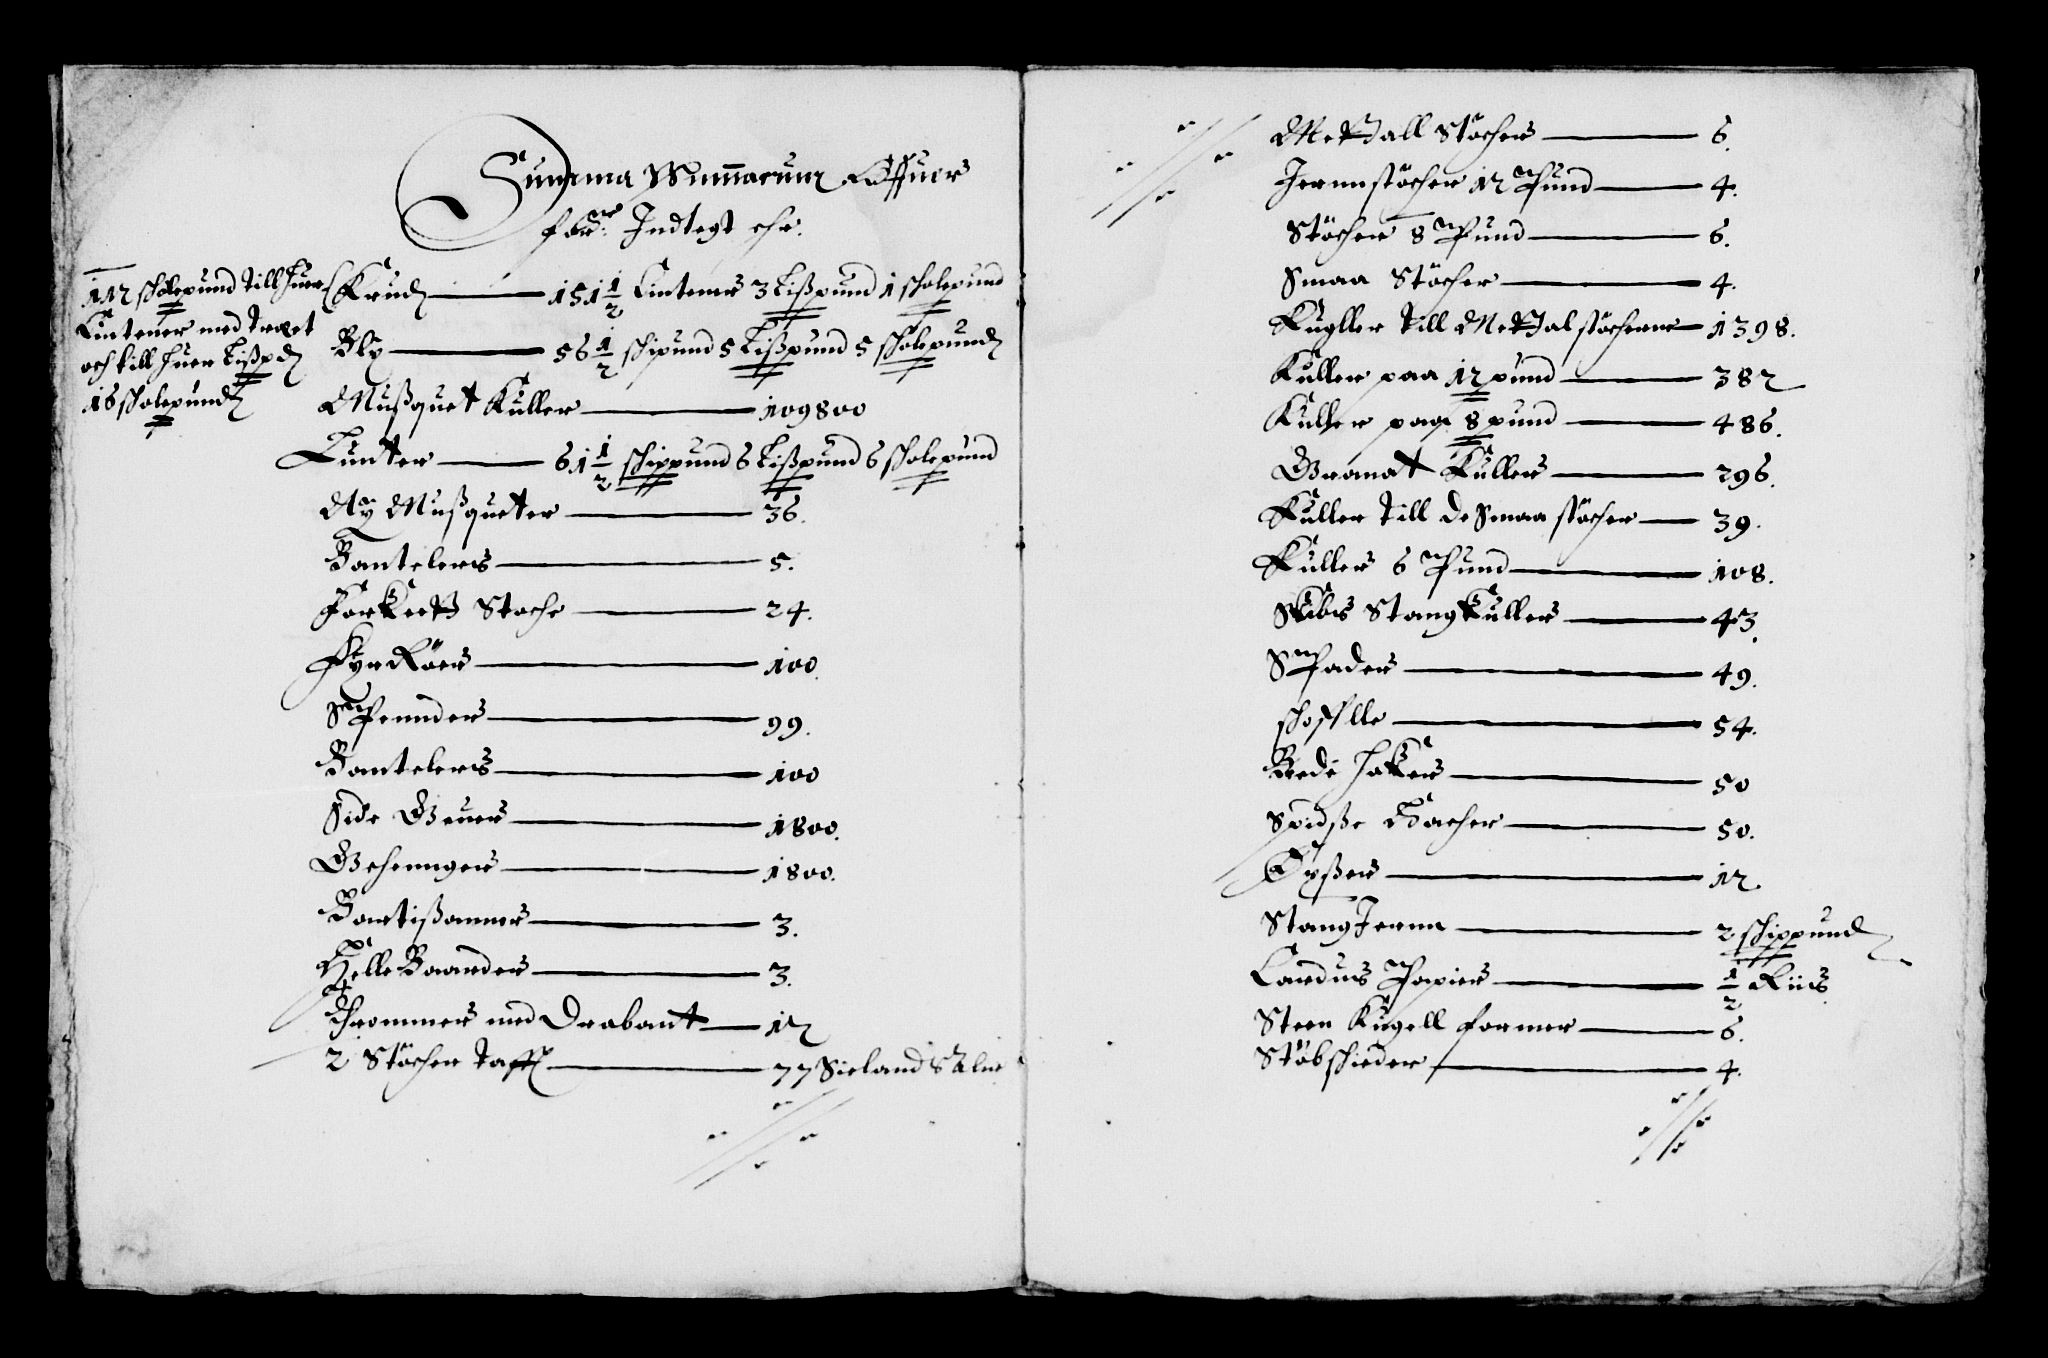 Summa Summarum Offuer
forne Indtegt ehr.
112 scholepund till huer
Cintener med træet
och till huer Lißpd
16 scholepund
Krud 151 1/2 Cintener 3 Lißpund 1 scholepund
Bly 56 1/2 schipund 5 Lißpund 5 scholepund
Mußquet Kuller 109800
Lunter 61 1/2 schippund 6 Lißpund 6 scholepund
Ny Mußqueter 36.
Bantelers 5.
Forkeett Stoche 24.
Fyr Röers 100.
Spennders 99.
Bantelers 100
Side Geuers 1800.
Gehennger 1800.
Bartißanner 3.
Helle Baarder 3.
Thrommer med Drabant 12
2 Stöcher taft 77 Sielands Alne
Mettall Stöcher 6.
Jernnstöcher 12 Pund 4.
Stöcher 8 Pund 6.
Smaa Stöcher 4.
Kugller till Mettalstöcherne 1398.
Kuller paa 12 pund 382
Kuller paa 8 pund 486.
Granat Kuller 296.
Kuller till de Smaa stöcher 39.
Kuller 6 Pund 108.
Skibs Stangkuller 43.
Spader 49.
schoffle 54.
Brede Haker 50
Spidße Hacher 50.
Öxßer 12.
Stang Jernn 2 schippund
Cardus Papier 1/2 Riis
Steen Kugell former 6.
Stöbschieder 4.